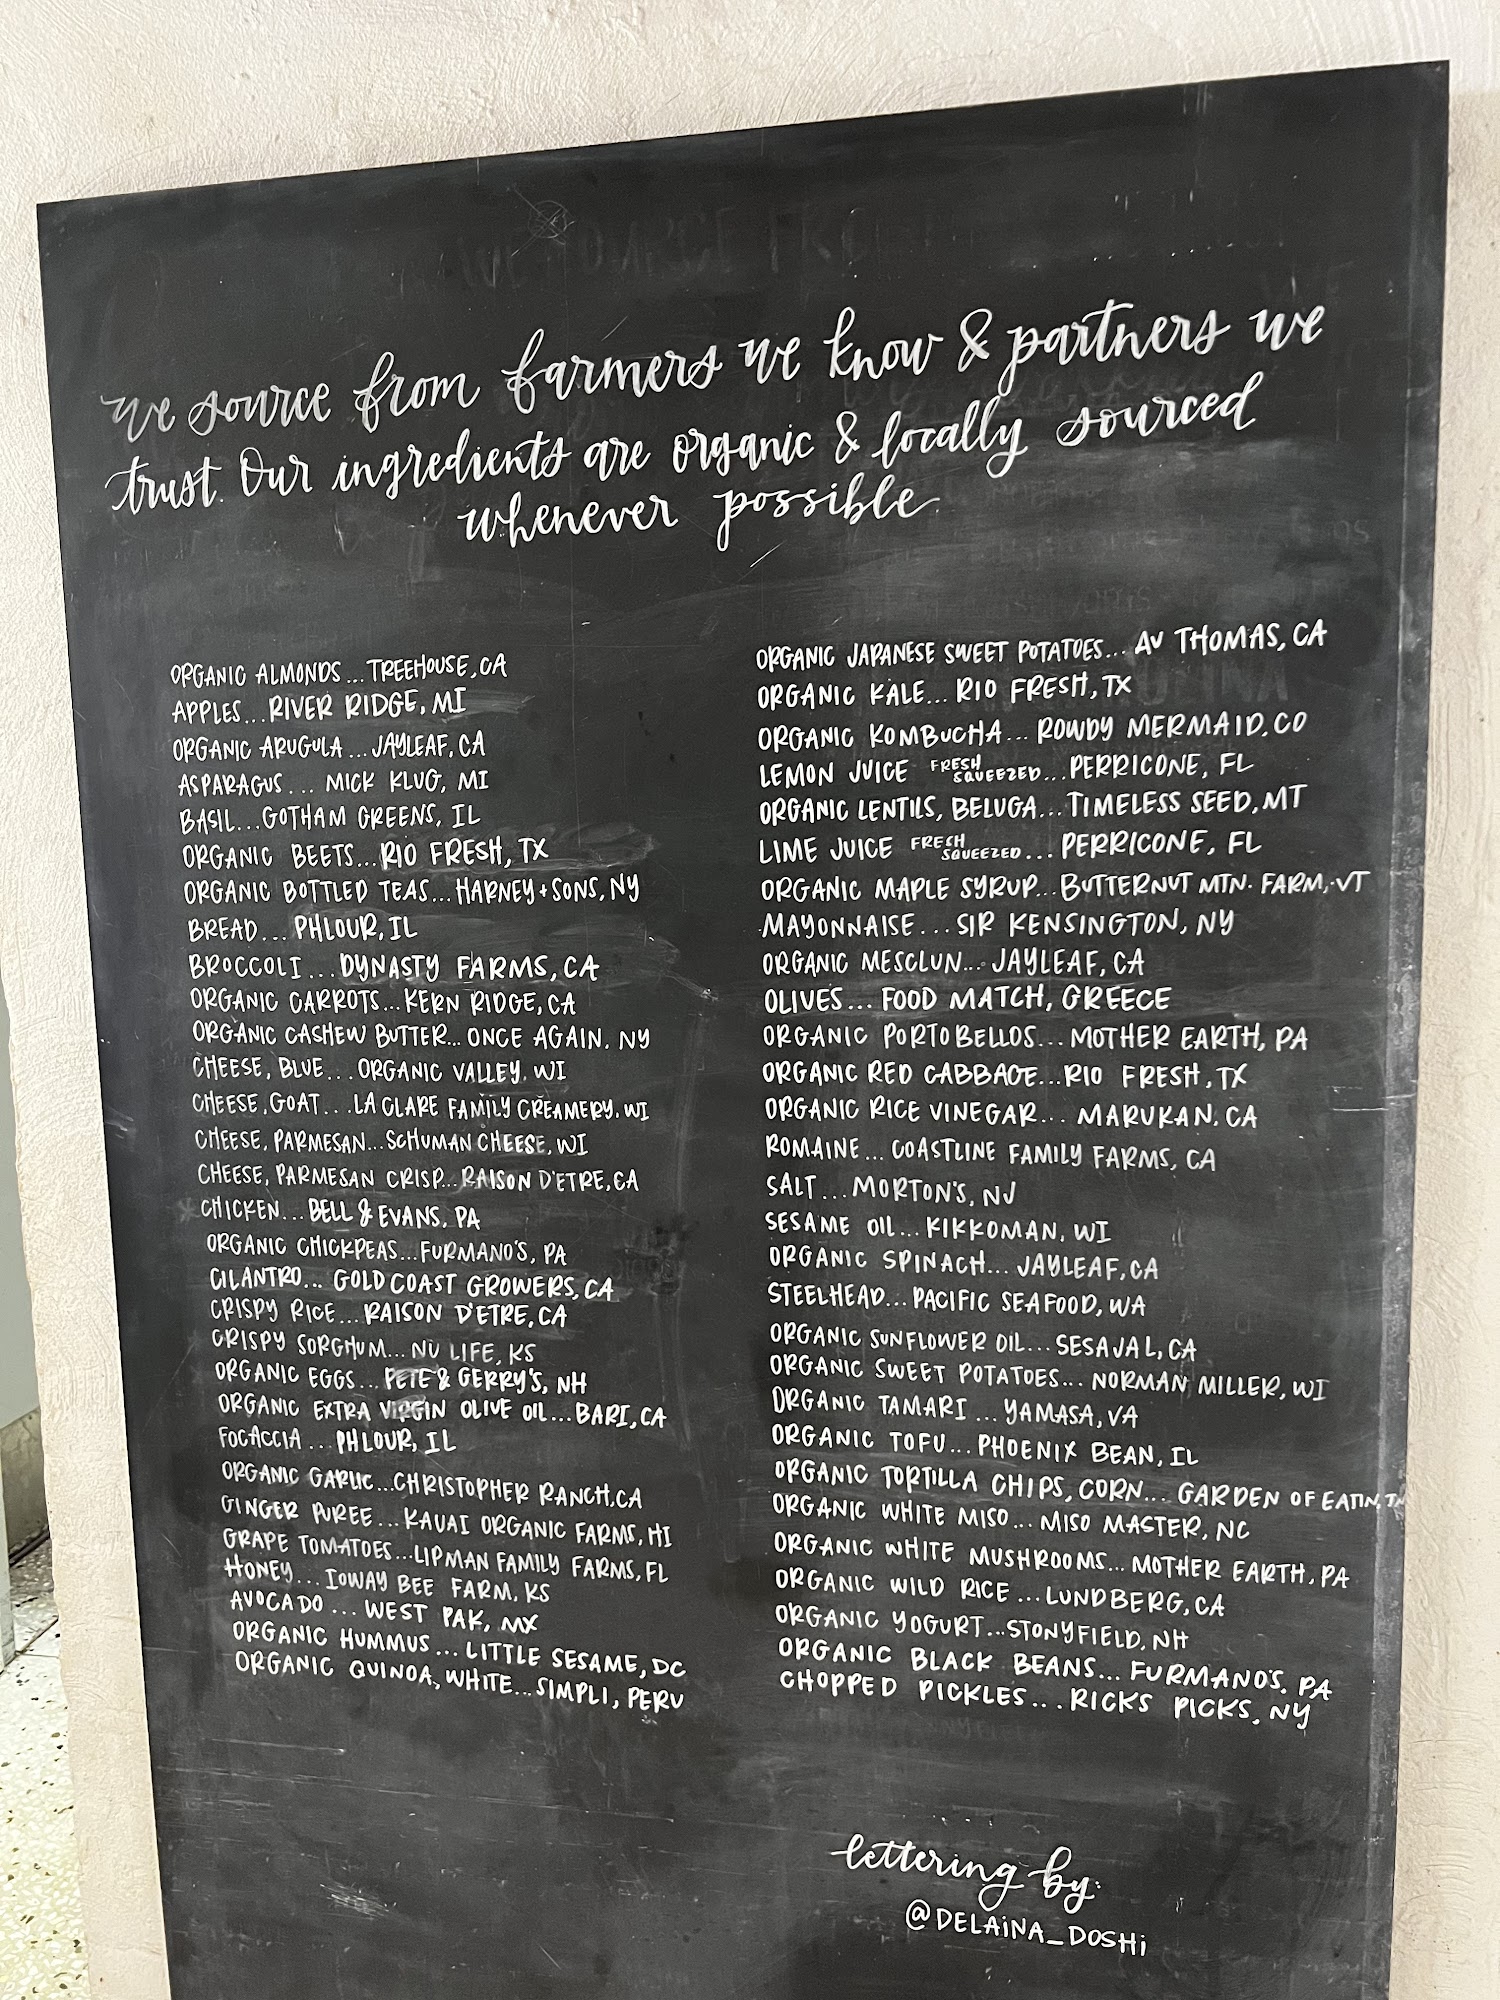 we source from farmers we know & partners we
trust. Our ingredients are organic & locally sourced
whenever possible.
ORGANIC ALMONDS...TREEHOUSE, CA
APPLES...RIVER RIDGE, MI
ORGANIC ARUGULA...JAYLEAF, CA
ASPARAGUS... MICK KLUG, MI
BASIL...GOTHAM GREENS, IL
ORGANIC BEETS...RIO FRESH, TX
ORGANIC BOTTLED TEAS...HARNEY + SONS, NY
BREAD... PHLOUR, IL
BROCCOLI...DYNASTY FARMS, CA
ORGANIC CARROTS...KERN RIDGE, CA
ORGANIC CASHEW BUTTER...ONCE AGAIN. NY
CHEESE, BLUE...ORGANIC VALLEY. WI
CHEESE, GOAT...LA CLARE FAMILY CREAMERY. WI
CHEESE, PARMESAN...SCHUMAN CHEESE, WI
CHEESE, PARMESAN CRISP...RAISON D'ETRE, CA
CHICKEN...BELL & EVANS, PA
ORGANIC CHICKPEAS...FURMANO'S, PA
CILANTRO... GOLD COAST GROWERS, CA
CRISPY RICE...RAISON D'ETRE, CA
CRISPY SORGHUM...NU LIFE, KS
ORGANIC EGGS...PETE & GERRY'S, NH
ORGANIC EXTRA VIRGIN OLIVE OIL...BARI, CA
FOCACCIA...PHLOUR, IL
ORGANIC GARLIC...CHRISTOPHER RANCH, CA
GINGER PUREE...KAUAI ORGANIC FARMS, HI
GRAPE TOMATOES...LIPMAN FAMILY FARMS, FL
HONEY...IOWAY BEE FARM, KS
AVOCADO...WEST PAK, MX
ORGANIC HUMMUS...LITTLE SESAME, DC
ORGANIC QUINOA, WHITE...SIMPLI, PERU
ORGANIC JAPANESE SWEET POTATOES... AV THOMAS, CA
ORGANIC KALE... RIO FRESH, TX
ORGANIC KOMBUCHA...ROWDY MERMAID, CO
LEMON JUICE FRESH SQUEEZED...PERRICONE, FL
ORGANIC LENTILS, BELUGA...TIMELESS SEED, MT
LIME JUICE FRESH SQUEEZED...PERRICONE, FL
ORGANIC MAPLE SYRUP...BUTTERNUT MTN. FARM, VT
MAYONNAISE...SIR KENSINGTON, NY
ORGANIC MESCLUN...JAYLEAF, CA
OLIVES... FOOD MATCH, GREECE
ORGANIC PORTOBELLOS...MOTHER EARTH, PA
ORGANIC RED CABBAGE...RIO FRESH, TX
ORGANIC RICE VINEGAR... MARUKAN. CA
ROMAINE...COASTLINE FAMILY FARMS, CA
SALT...MORTON'S, NJ
SESAME OIL...KIKKOMAN, WI
ORGANIC SPINACH...JAYLEAF, CA
STEELHEAD...PACIFIC SEAFOOD, WA
ORGANIC SUNFLOWER OIL...SESAJAL, CA
ORGANIC SWEET POTATOES...NORMAN MILLER, WI
ORGANIC TAMARI...YAMASA, VA
ORGANIC TOFU...PHOENIX BEAN, IL
ORGANIC TORTILLA CHIPS, CORN...GARDEN OF EATIN,
ORGANIC WHITE MISO...MISO MASTER, NC
ORGANIC WHITE MUSHROOMS...MOTHER EARTH, PA
ORGANIC WILD RICE...LUNDBERG, CA
ORGANIC YOGURT...STONYFIELD, NH
ORGANIC BLACK BEANS...FURMANO'S, PA
CHOPPED PICKLES...RICKS PICKS, NY
lettering by:
@DELAINA_DOSHI